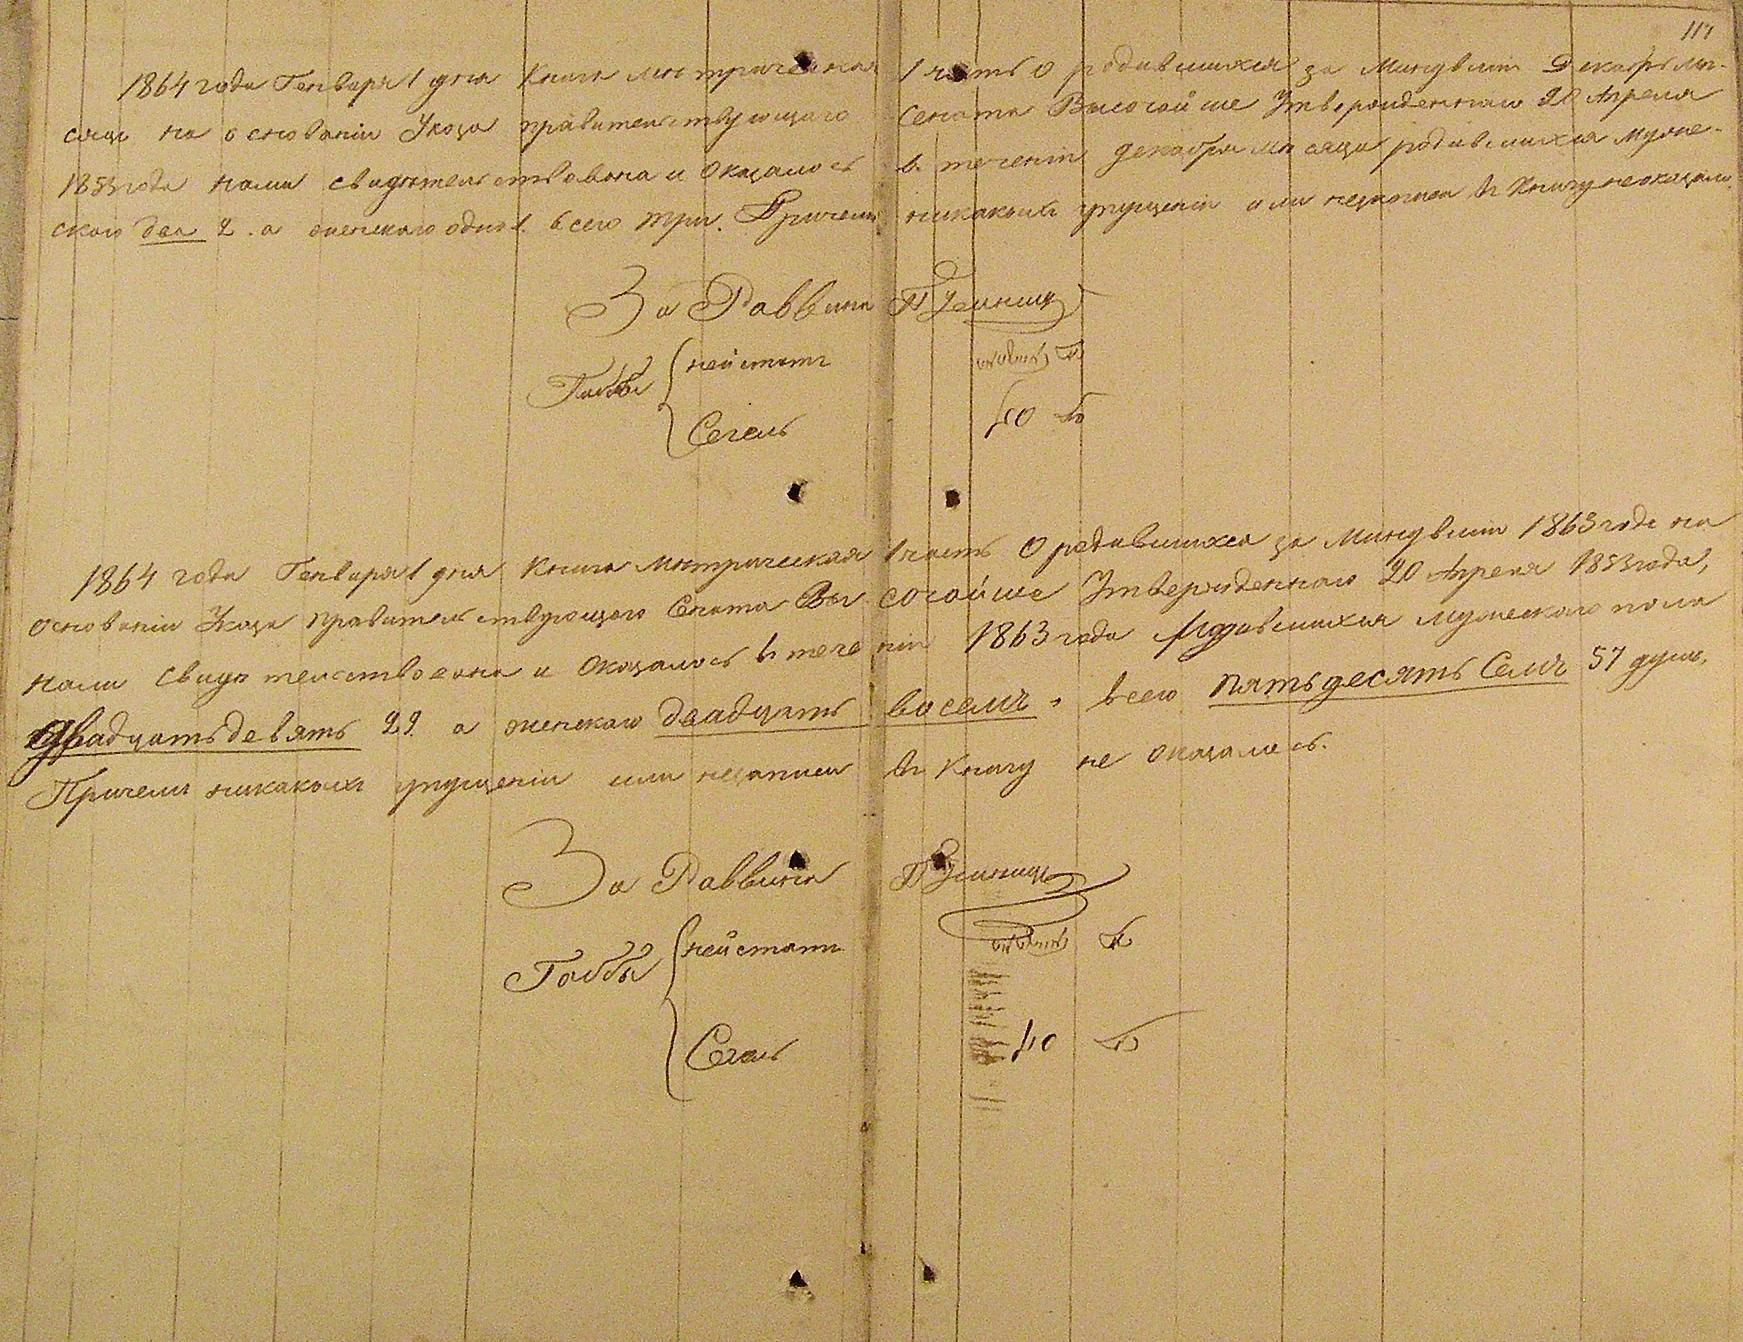 117
1864 года Генваря 1 дня Книга метрическая 1 часть о родившихся за Минувшій Декабрь мѣ-
сяцъ на основаніи Указа правительствующаго Сената Высочайше Утвержденнаго 20 Апреля
1853 года нами свидѣтельствована и Оказалось въ теченіи декабря мѣсяца родившихся муже-
скаго два 2. а женскаго одно 1. всего три. Причемъ никакихъ упущеній или незаписи въ Книгу не оказалось.
За Раввина
Габбы
Нейштатъ
Сегель
1864 года Генваря 1 дня Книга Метрическая 1 часть О родившихся за Минувшій 1863 годъ на
основаніи Указа правительствующаго Сената Высочайше Утвержденнаго 20 Апреля 1853 года,
нами Свидѣтельствована и Оказалось въ теченіи 1863 года родившихся мужескаго пола
двадцать девять 29. а женскаго двадцать восемъ, всего пятьдесятъ Семъ 57 душъ,
Причемъ никакихъ упущеній или незаписи въ Книгу не оказалось.
За Раввина
Габбы
Нейштатъ
Сегель